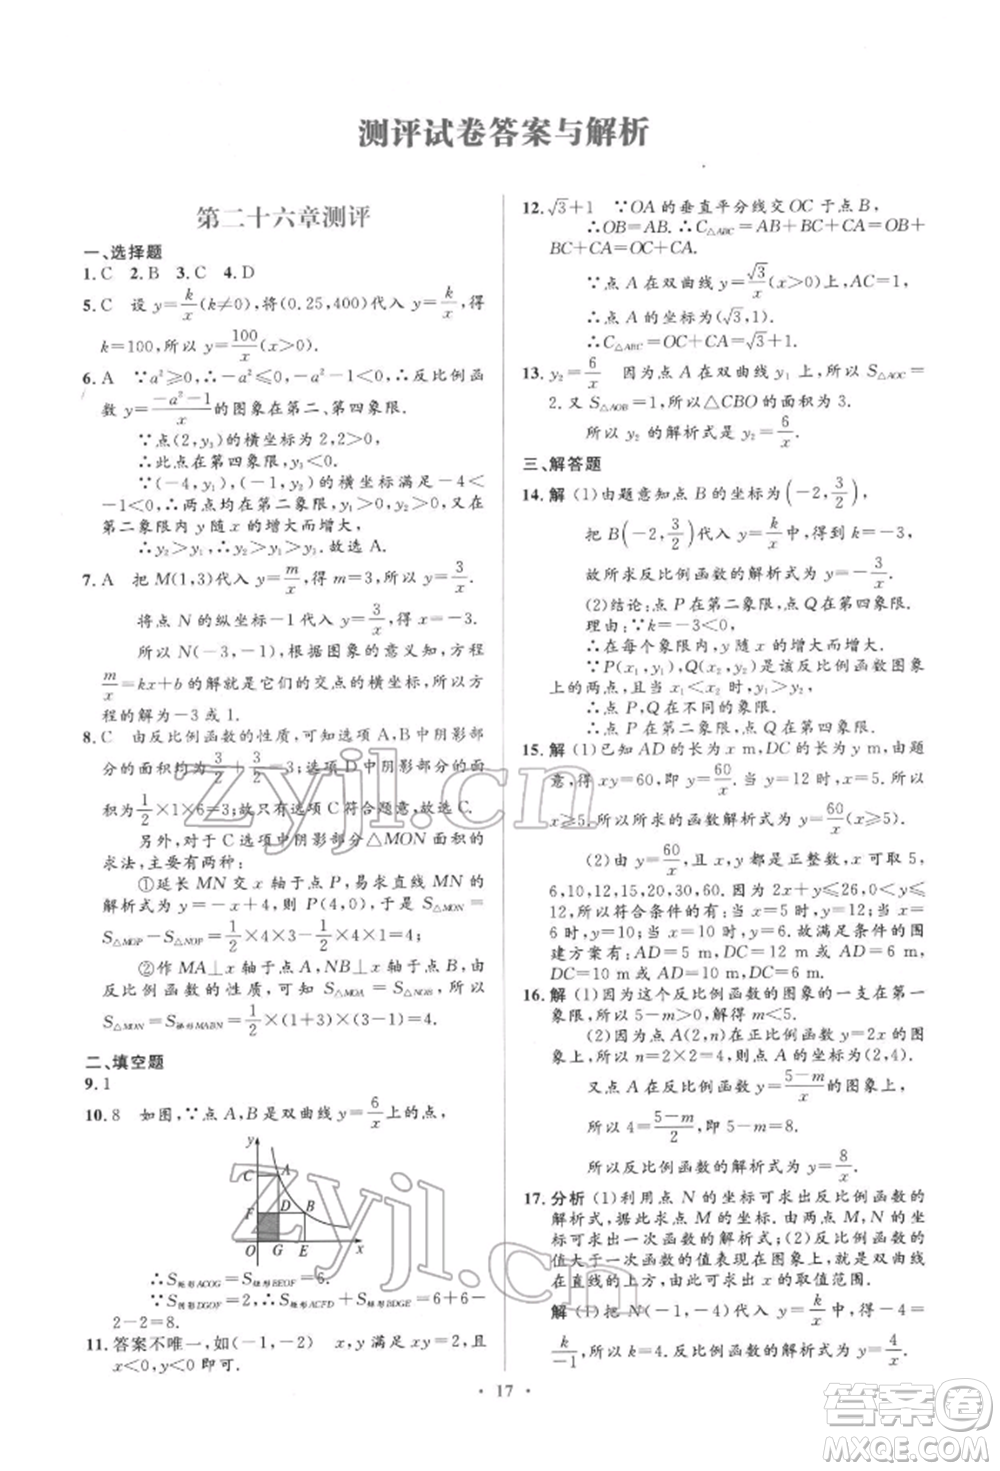 测评试卷答案与解析
第二十六章测评
一、选择题
1.C 2.B 3.C 4.D
5.C 设 y=k/x(k≠0),将(0.25,400)代入 y=k/x,得
k=100,所以 y=100/x(x>0).
6.A ∵a²≥0,∴-a²≤0,∴-a²-1<0,∴反比例函
数 y=(-a²-1)/x 的图象在第二、第四象限.
∵点(2,y₃)的横坐标为 2,2>0,
∴此点在第四象限,y₃<0.
∵(-4,y₁),(-1,y₂)的横坐标满足-4<
-1<0,∴两点均在第二象限,∴y₁>0,y₂>0,又在
第二象限内 y 随 x 的增大而增大,
∴y₂>y₁,∴y₂>y₁>y₃.故选 A.
7.A 把 M(1,3)代入 y=m/x,得 m=3,所以 y=3/x.
将点 N 的纵坐标-1 代入 y=3/x,得 x=-3.
所以 N(-3,-1),根据图象的意义知,方程
m/x=kx+b 的解就是它们的交点的横坐标,所以方
程的解为-3 或 1.
8.C 由反比例函数的性质,可知选项 A,B 中阴影部
分的面积均为3/2+3/2=3;选项 D 中阴影部分的面
积为1/2×1×6=3;故只有选项 C 符合题意,故选 C.
另外,对于 C 选项中阴影部分△MON 面积的
求法,主要有两种:
①延长 MN 交 x 轴于点 P,易求直线 MN 的
解析式为 y=-x+4,则 P(4,0),于是 S△MON=
S△MOP-S△NOP=1/2×4×3-1/2×4×1=4;
②作 MA⊥x 轴于点 A,NB⊥x 轴于点 B,由
反比例函数的性质,可知 S△MOA=S△NOB,所以
S△MON=S梯形MABN=1/2×(1+3)×2=4.
二、填空题
9.1
10.8 如图,∵点 A,B 是双曲线 y=6/x上的点,
y
C A
F D B
O G E x
∴S矩形ACOG=S矩形BEOF=6.
∵S阴影DGOF=2,∴S矩形ACFD+S矩形BDGE=6+6-
2-2=8.
11.答案不唯一,如(-1,-2) x,y 满足 xy=2,且
x<0,y<0 即可.
12.√3+1 ∵OA 的垂直平分线交 OC 于点 B,
∴OB=AB.∴C△ABC=AB+BC+CA=OB+
BC+CA=OC+CA.
∵点 A 在双曲线 y=√3/x(x>0)上,
∴点 A 的坐标为(√3,1).
∴C△ABC=OC+CA=√3+1.
13.y₂=6/x 因为点 A 在双曲线 y₁ 上,所以 S△AOC=
2.又 S△AOB=1,所以△CBO 的面积为 3.
所以 y₂ 的解析式是 y₂=6/x.
三、解答题
14.解 (1)由题意知点 B 的坐标为(-2,3/2),
把 B(-2,3/2)代入 y=k/x中,得到 k=-3,
故所求反比例函数的解析式为 y=-3/x.
(2)结论:点 P 在第二象限,点 Q 在第四象限.
理由:∵k=-3<0,
∴在每个象限内,y 随 x 的增大而增大.
∵P(x₁,y₁),Q(x₂,y₂)是该反比例函数图象
上的两点,且当 x₁<x₂ 时,y₁>y₂,
∴点 P,Q 在不同的象限.
∴点 P 在第二象限,点 Q 在第四象限.
15.解 (1)已知 AD 的长为 x m,DC 的长为 y m,由题
意,得 xy=60,即 y=60/x.当 y=12 时,x=5.所以
x≥5.所以所求的函数解析式为 y=60/x(x≥5).
(2)由 y=60/x,且 x,y 都是正整数,x 可取 5,
6,10,12,15,20,30,60.因为 2x+y≤26,0<y≤12,
所以符合条件的有:当 x=5 时,y=12;当 x=
6 时,y=10;当 x=10 时,y=6.故满足条件的围
建方案有:AD=5 m,DC=12 m 或 AD=6 m,
DC=10 m 或 AD=10 m,DC=6 m.
16.解 (1)因为这个反比例函数的图象的一支在第一
象限,所以 5-m>0,解得 m<5.
(2)因为点 A(2,n)在正比例函数 y=2x 的图
象上,所以 n=2×2=4,则点 A 的坐标为(2,4).
又点 A 在反比例函数 y=(5-m)/x的图象上,
所以 4=(5-m)/2,即 5-m=8.
所以反比例函数的解析式为 y=8/x.
17.分析 (1)利用点 N 的坐标可求出反比例函数的
解析式,据此求点 M 的坐标.由两点 M,N 的坐标
可求出一次函数的解析式;(2)求使反比例函数的
值大于一次函数的值表现在图象上,就是双曲线
在直线的上方,据此可求出 x 的取值范围.
解 (1)把 N(-1,-4)代入 y=k/x中,得-4=
k/-1,所以 k=4.反比例函数的解析式为 y=4/x.
· 17 ·
zyjl.cn
zyjl.cn
答案圈
MXQE.COM